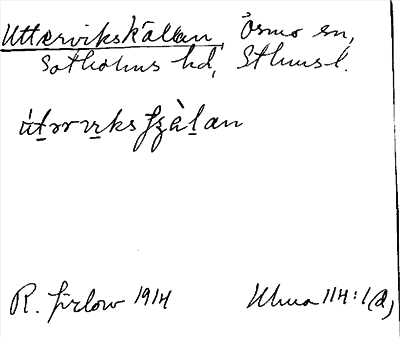 Uttervikskällan, Ösmo sn,
Sotholms hd, Sthms l.
útərvıksʃʒàlan
R. Jirlow 1914 Uhua 114:1(a)